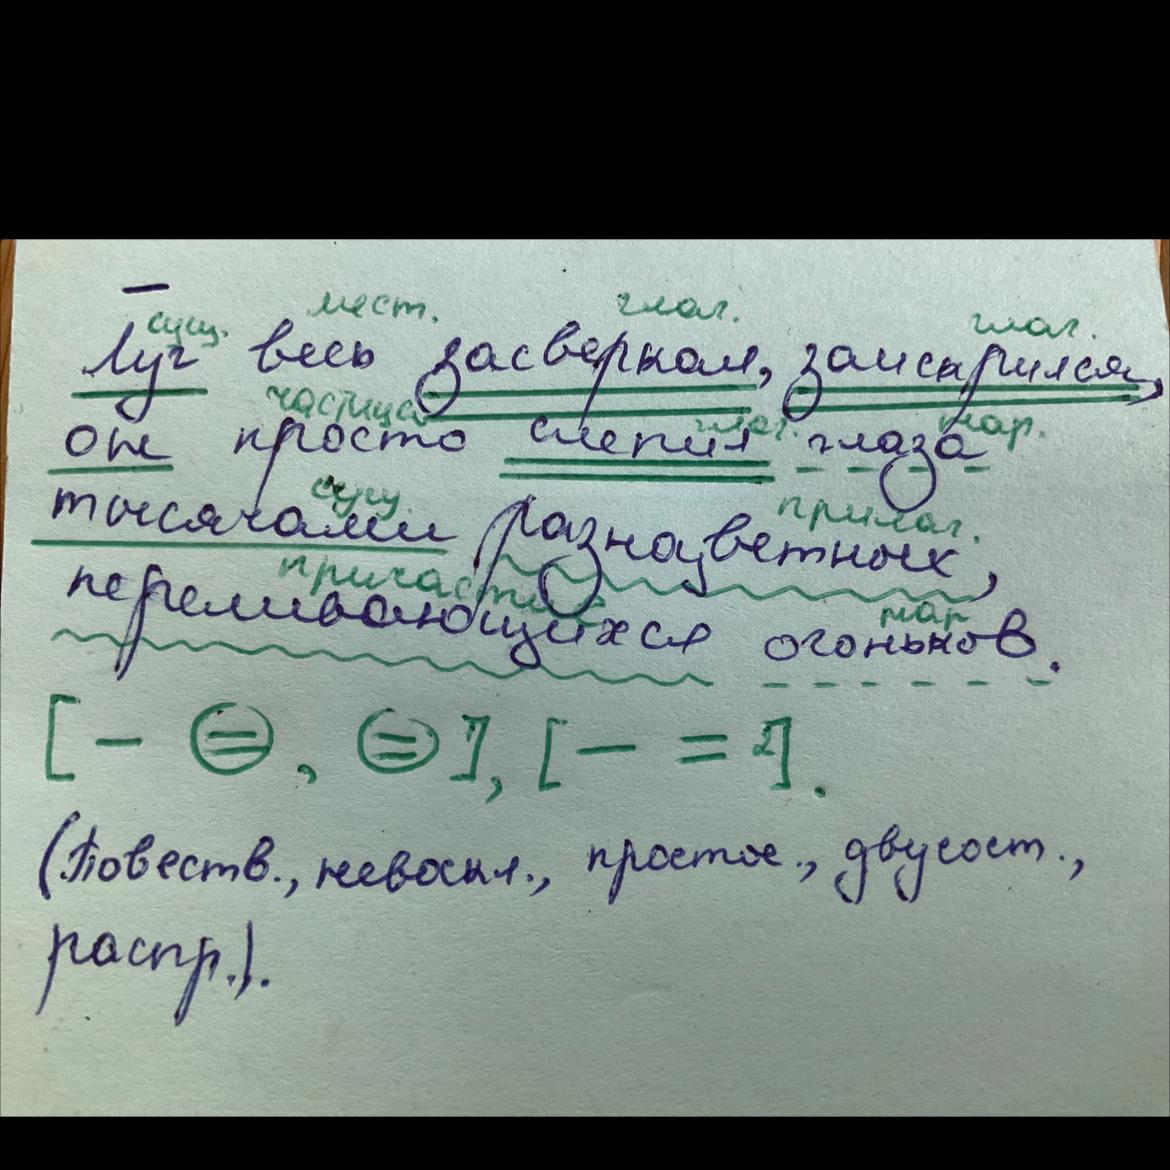 сущ. мест. глаг. глаг.
Луг весь засверкал, заискрился,
частица глаг. нар.
он просто слепил глаза
сущ. прилаг.
тысячами разноцветных,
причастие нар
переливающихся огоньков.
[— =, =], [— =].
(Повеств., невоскл., простое., двусост.,
распр.).